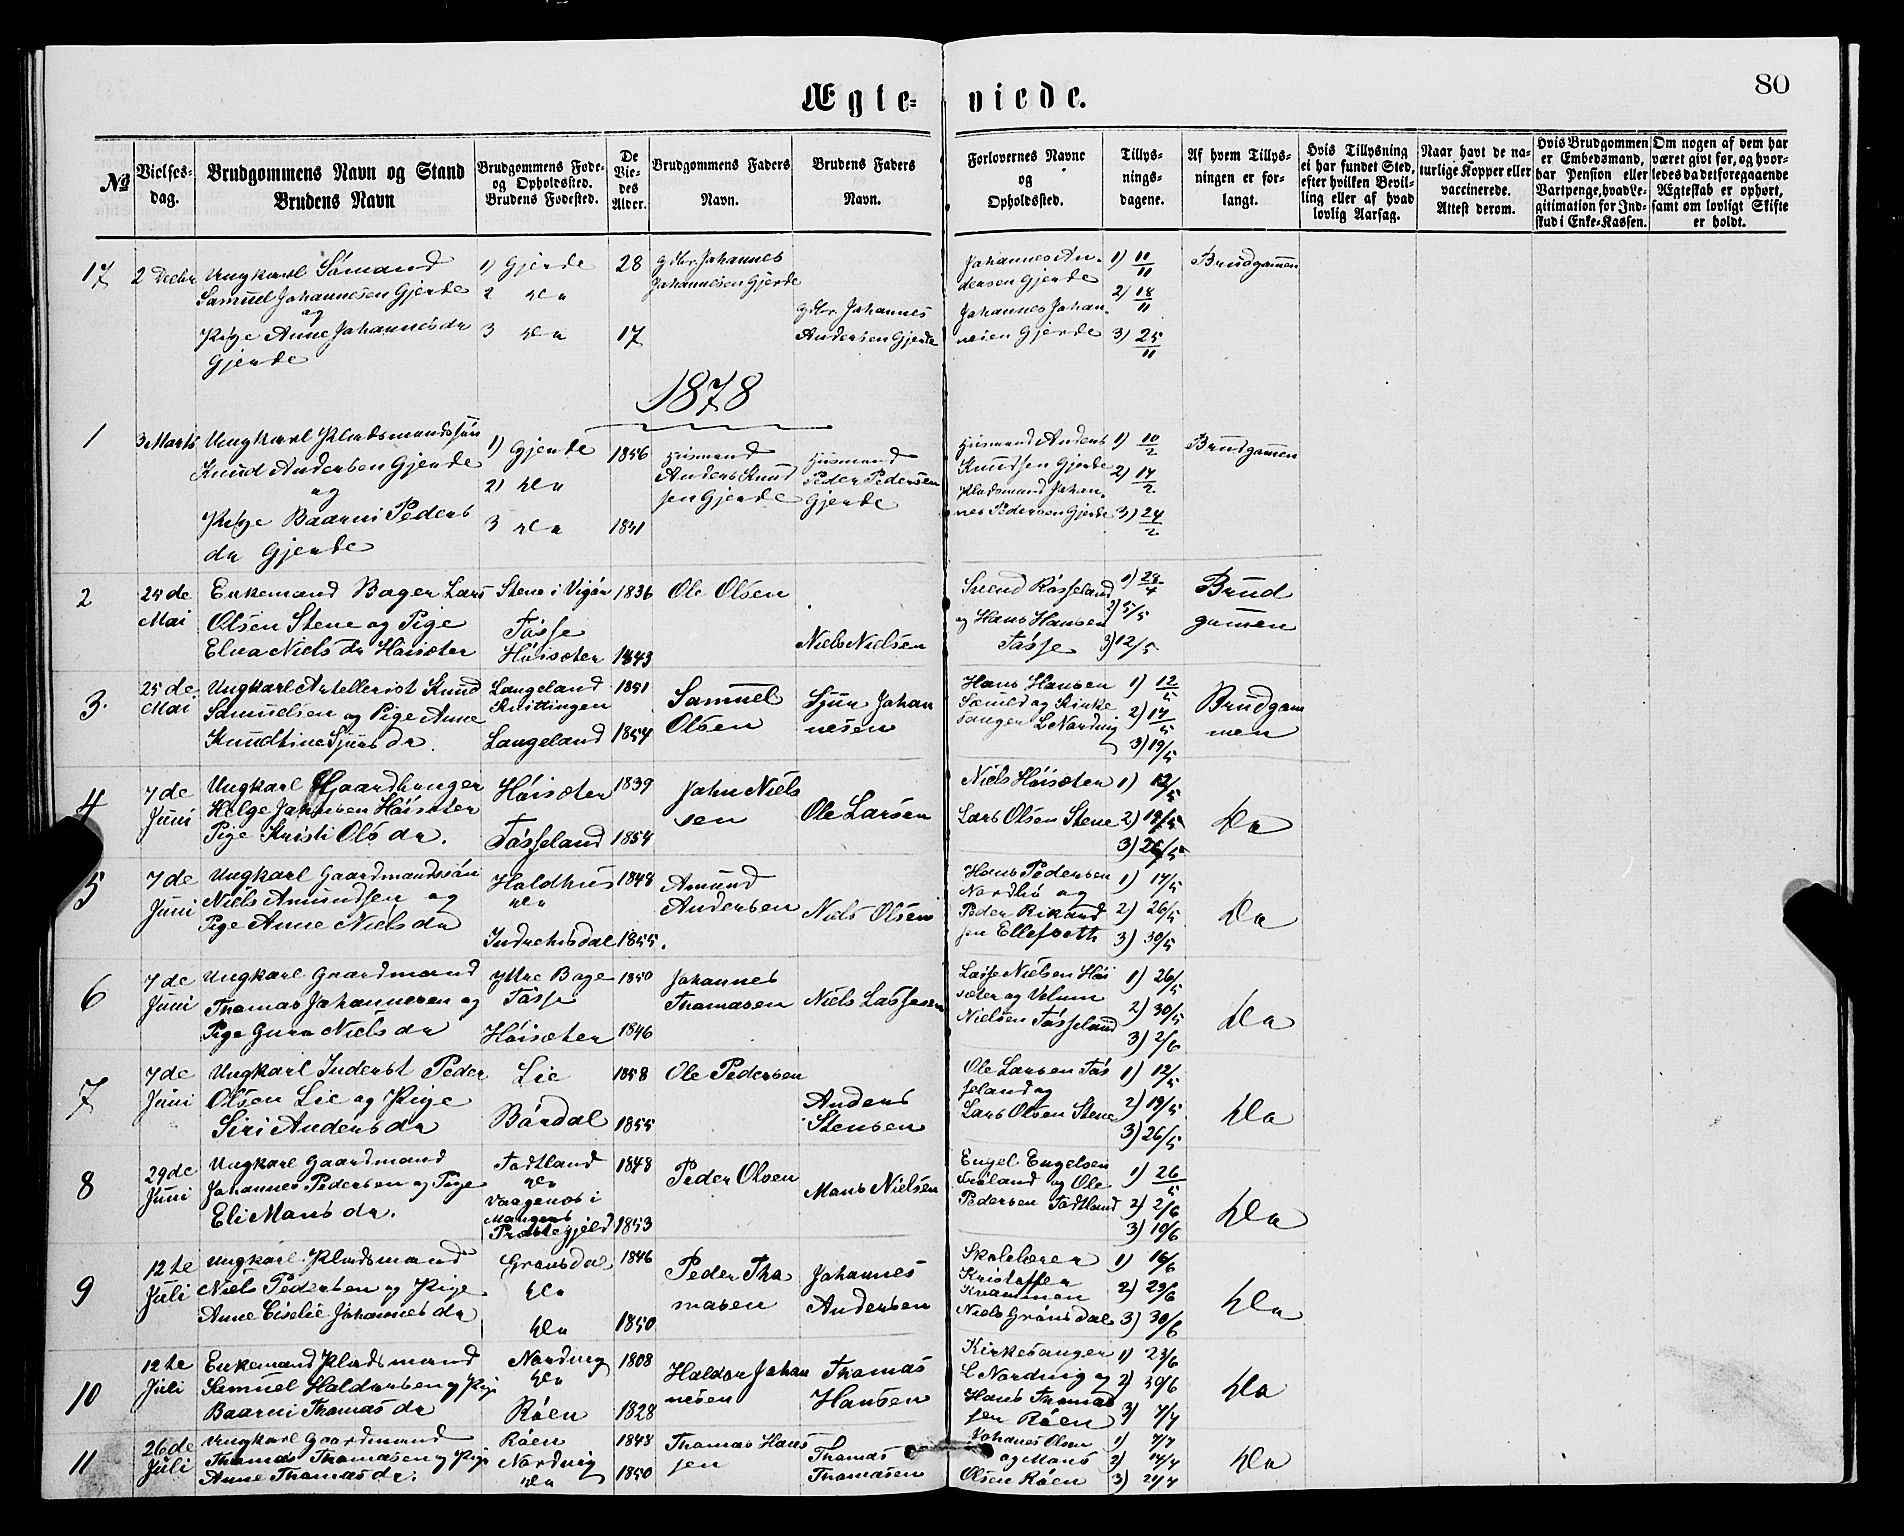 80
Ægte- viede.
No
Vielses-
dag.
Brudgommens Navn og Stand
Brudens Navn
Brudgommens Føde-
og Opholdssted.
Brudens Fødested.
De
Vie-
des
Alder.
Brudgommens Faders
Navn.
Brudens Faders
Navn.
Forlovernes Navne
og
Opholdssted.
Tillys-
nings-
dagene.
Af hvem Tillys-
ningen er for-
langt.
Hvis Tillysning
ei har fundet Sted,
efter hvilken Bevil-
ling eller af hvad
lovlig Aarsag.
Naar havt de na-
turlige Kopper eller
vaccinerede.
Attest derom.
Hvis Brudgommen
er Embedsmand,
har Pension eller
Vartpenge, hvad Le-
gitimation for Ind-
skud i Enke-Kassen.
Om nogen af dem har
været givt før, og hvor-
ledes da det foregaaende
Ægteskab er ophørt,
samt om lovligt Skifte
er holdt.
17
2 Decbr
Ungkarl Sømand
Samuel Johannesen Gjerde
og
Pige Anne Johannesdr
Gjerde
1) Gjerde
2 do
3 do
28
17
gdbr. Johannes
Johannesen Gjerde
gdbr. Johannes
Andersen Gjerde
Johannes An-
dersen Gjerde
Johannes Johan-
nesen Gjerde
1) 11/11
2) 18/11
3) 25/11
Brudgommen
1878
1
3 Marts
Ungkarl Pladsmandssøn
Knud Andersen Gjerde
og
Pige Baarni Peders
dr Gjerde
1) Gjerde
2) do
3 do
1856
1851
Husmand
Anders Knud
sen Gjerde
Husmand
Peder Pedersen
Gjerde
Husmand Anders
Knudsen Gjerde
Pladsmand Johan-
nes Pedersen Gjerde
1) 10/2
2) 17/2
3) 24/2
Brudgommen
2
25de
Mai
Enkemand Bager Lars
Olsen Stene og Pige
Elna Nielsdr Høisæter
Stene i Vigør
Tøsse
Høisæter
1836
1843
Ole Olsen
Niels Nielsen
Svend Røsseland
og Hans Hansen
Tøsse
1) 28/4
2) 5/5
3) 12/5
Brud
gomen
3.
25de
Mai
Ungkarl Artellerist Knud
Samuelsen og Pige Anne
Knudtine Sjursdr.
Langeland
Kvittingen
Langeland
1851
1854
Samuel
Olsen
Sjur Johan
nesen
Hans Hansen
og Kirke
sanger L Nordvig
1) 12/5
2) 17/5
3) 19/5
Brudgom
men
4
7de
Juni
Ungkarl Hjaardbruger
Helge Johnsen Høisæter
Pige Kristi Olsdr.
Høisæter
Tøsseland
1839
1854
John Niels
sen
Ole Larsen
Niels Høisæter
Lars Olsen Stene
1) 12/5
2) 19/5
3) 26/5
do
5
7de
Juni
Ungkarl Gaardmandssøn
Niels Amundsen og
Pige Anne Nielsdr
Haldhus
do
Indrehisdal
1848
1855.
Amund
Andersen
Niels Olsen
Hans Pedersen
Nordbø og
Peder Rikard
sen
1) 17/5
2) 26/5
3) 30/5
do
6
7de
Juni
Ungkarl Gaardmand
Thomas Johannesen og
Pige Guro Nielsdr
Yttre Boge
Tøsse
Høisæter
1850
1846
Johannes
Thomasen
Niels Lassesen
Lasse Nielsen Høi
sæter og
Nielsen Tøsseland
1) 26/5
2) 30/5
3) 2/6
do
7
7de
Juni
Ungkarl Inderst Peder
Olsen Lie og Pige
Siri Andersdr
Lie
Børdal
1858
1855
Ole Pedersen
Anders
Stensen
Ole Larsen Tøs
seland og
Lars Olsen Stene
1) 12/5
2) 19/5
3) 26/5
do
8
29de
Juni
Ungkarl Gaardmand
Johannes Pedersen og Pige
Eli Monsdr.
Totland
do
Vaagenes i
Mangers
Præstegjeld
1848
1853
Peder Olsen
Mons Nielsen
Engel Engelsen
Frøland og Ole
Pedersen Totland
1) 26/5
2) 2/6
3) 10/6
do
9
12te
Juli
Ungkarl Pladsmand
Niels Pedersen og Pige
Anne Ciselie Johannesdr
Grønsdal
do
do
1846
1850
Peder Tho
masen
Johannes
Andersen
Skolelærer
Kristoffer
Kvammen
Niels Grønsdal
1) 16/6
2) 23/6
3) 30/6
do
10
12te
Juli
Enkemand Pladsmand
Samuel Haldorsen og Pige
Baarni Thomasdr
Nordvig
do
Røen
1808
1828
Haldor Johan
nesen
Thomas
Hansen
Kirkesanger
L Nordvig og
Hans Thomas
sen Røen
1) 23/6
2) 30/6
3) 7/7
do
11
26de
Juli
Ungkarl Gaardmand
Thomas Thomasen og Pige
Anne Thomasdr.
Røen
Nordvig
do
1848
1850
Thomas Hans
sen
Thomas
Thomasen
Johanes Olsen
og Mons
Olsen Røen
1) 7/7
2) 14/7
3) 21/7
do